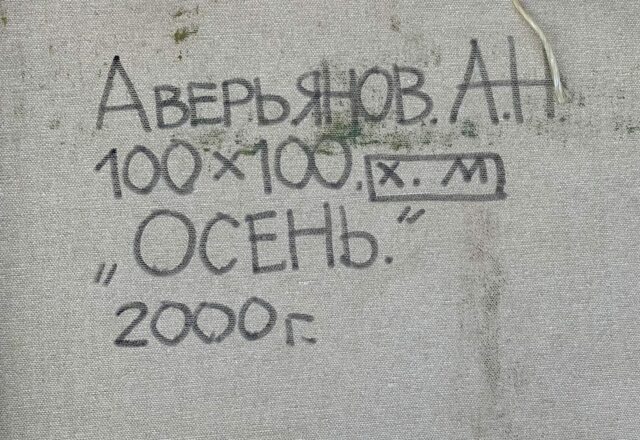 Аверьянов. А.Н
100×100. х. м
„Осень.”
2000г.